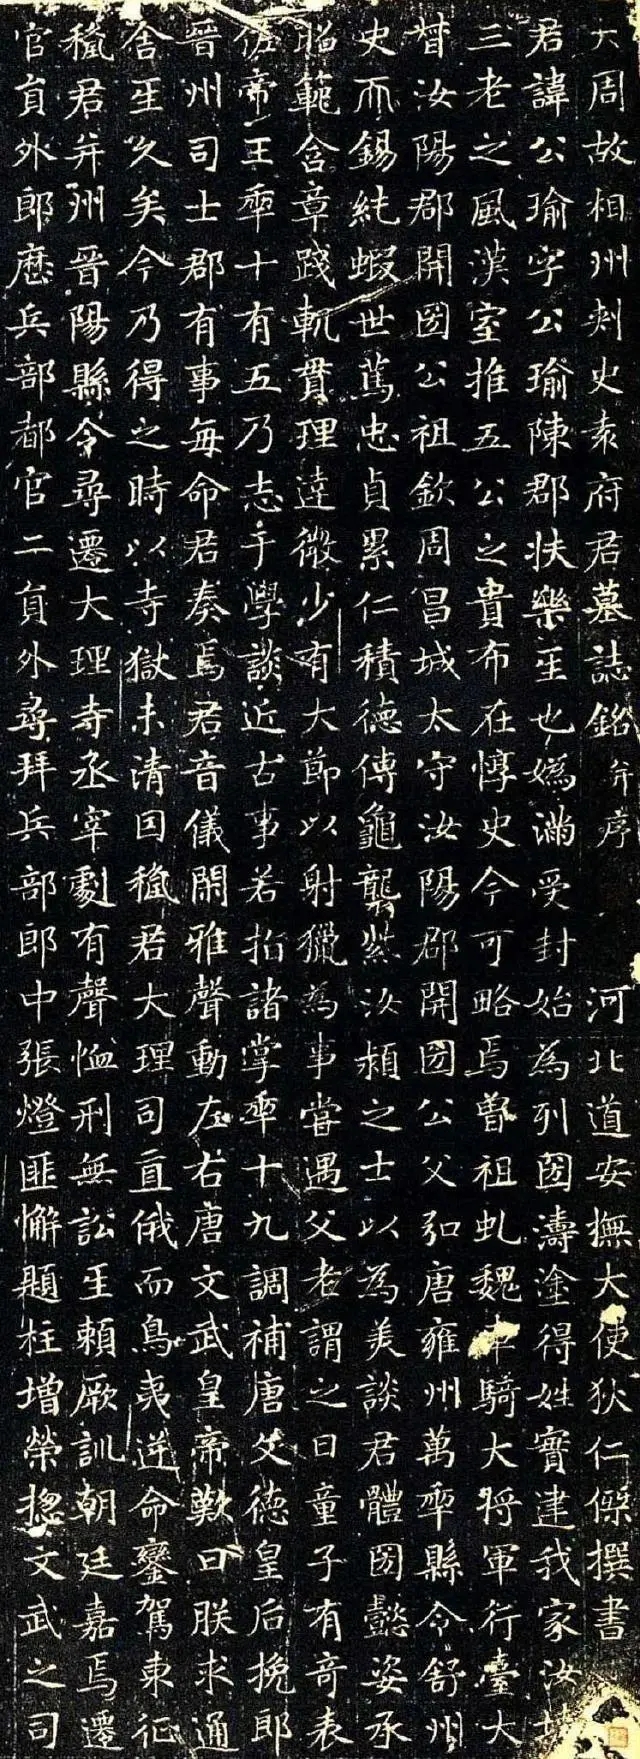 大周故相州刾史袁府君墓誌銘并序 河北道安撫大使狄仁傑撰書
君諱公瑜字公瑜陳郡扶樂𤯔也媯滿受封始為列圀濤塗得姓寶建我家汝墳
三老之風漢室推五公之貴布在惇史今可略焉曾祖虬魏車騎大將軍行臺大
𣈆汝陽郡開圀公祖欽周昌城太守汝陽郡開圀公父弘唐雍州萬𠡦縣令舒州
史而錫純嘏世篤忠貞累仁積德傳龜襲紫汝潁之士以為美談君體圀懿姿承
昭範含章踐軌貫理達微少有大節以射獵為事甞遇父老謂之曰童子有奇表
佐帝王𠡦十有五乃志于學談近古事若指諸掌𠡦十九調補唐文德皇后挽郎
晉州司士郡有事每命君奏焉君音儀閑雅聲動左右唐文武皇帝歎曰朕求通
舍𤯔久矣今乃得之時以寺獄未清因授君大理司直俄而鳥夷逆命鑾駕東征
授君并州晉陽縣令尋遷大理寺丞宰劇有聲恤刑無訟𤯔賴厥訓朝廷嘉焉遷
官員外郎歷兵部都官二員外尋拜兵部郎中張燈匪懈題柱增榮揔文武之司